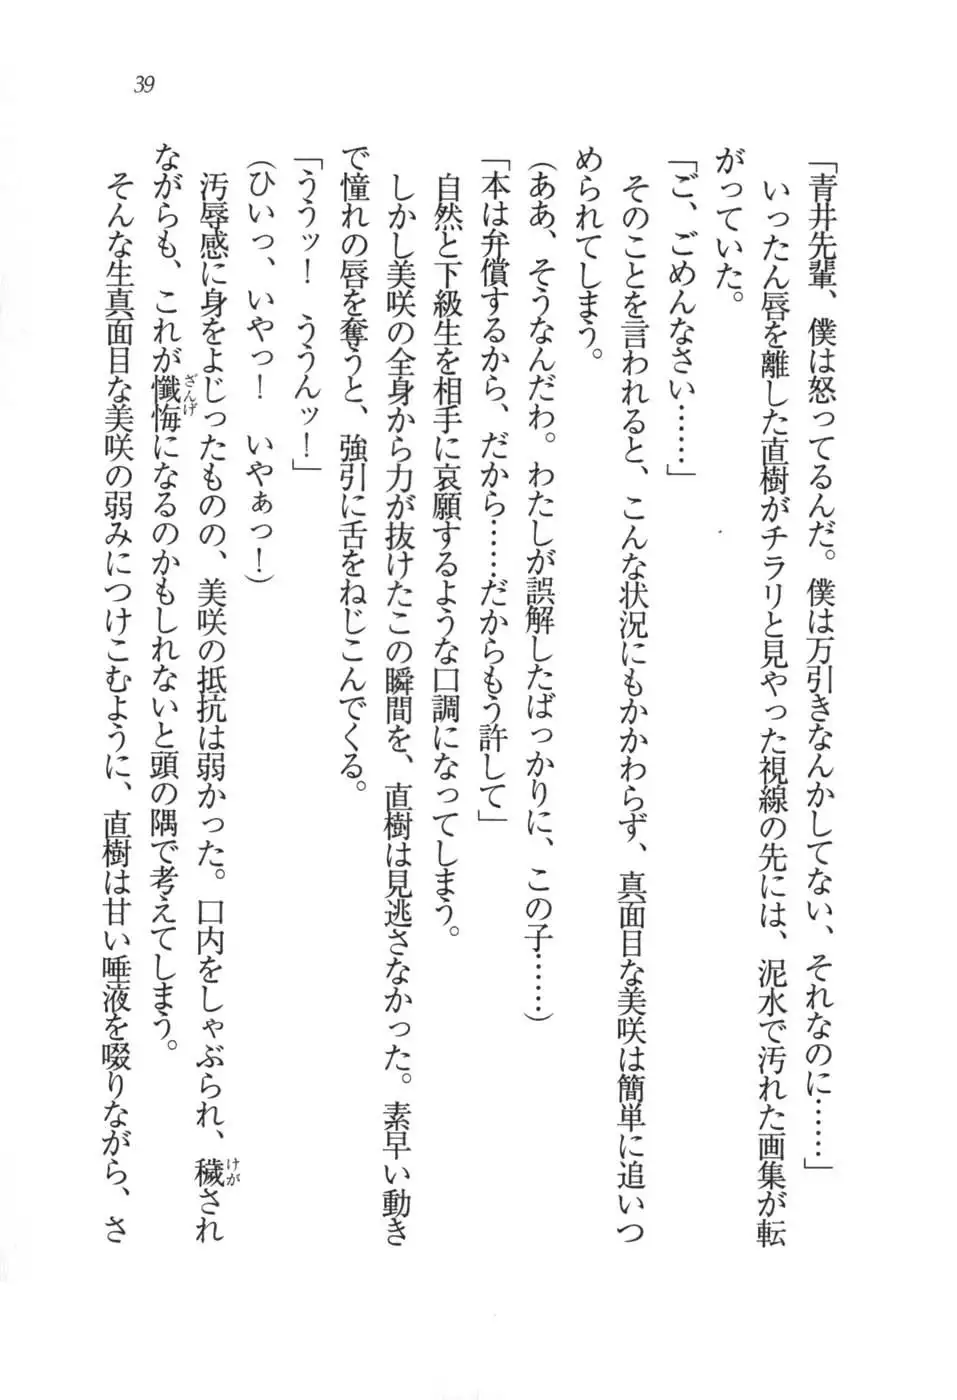 39
「青井先輩、僕は怒ってるんだ。僕は万引きなんかしてない、それなのに……」
いったん唇を離した直樹がチラリと見やった視線の先には、泥水で汚れた画集が転
がっていた。
「ご、ごめんなさい……」
そのことを言われると、こんな状況にもかかわらず、真面目な美咲は簡単に追いつ
められてしまう。
(ああ、そうなんだわ。わたしが誤解したばっかりに、この子……)
「本は弁償するから、だから……だからもう許して」
自然と下級生を相手に哀願するような口調になってしまう。
しかし美咲の全身から力が抜けたこの瞬間を、直樹は見逃さなかった。素早い動き
で憧れの唇を奪うと、強引に舌をねじこんでくる。
「ううッ！　ううんッ！」
(ひいっ、いやっ！　いやぁっ！)
汚辱感に身をよじったものの、美咲の抵抗は弱かった。口内をしゃぶられ、穢(けが)され
ながらも、これが懺悔(ざんげ)になるのかもしれないと頭の隅で考えてしまう。
そんな生真面目な美咲の弱みにつけこむように、直樹は甘い唾液を啜りながら、さ